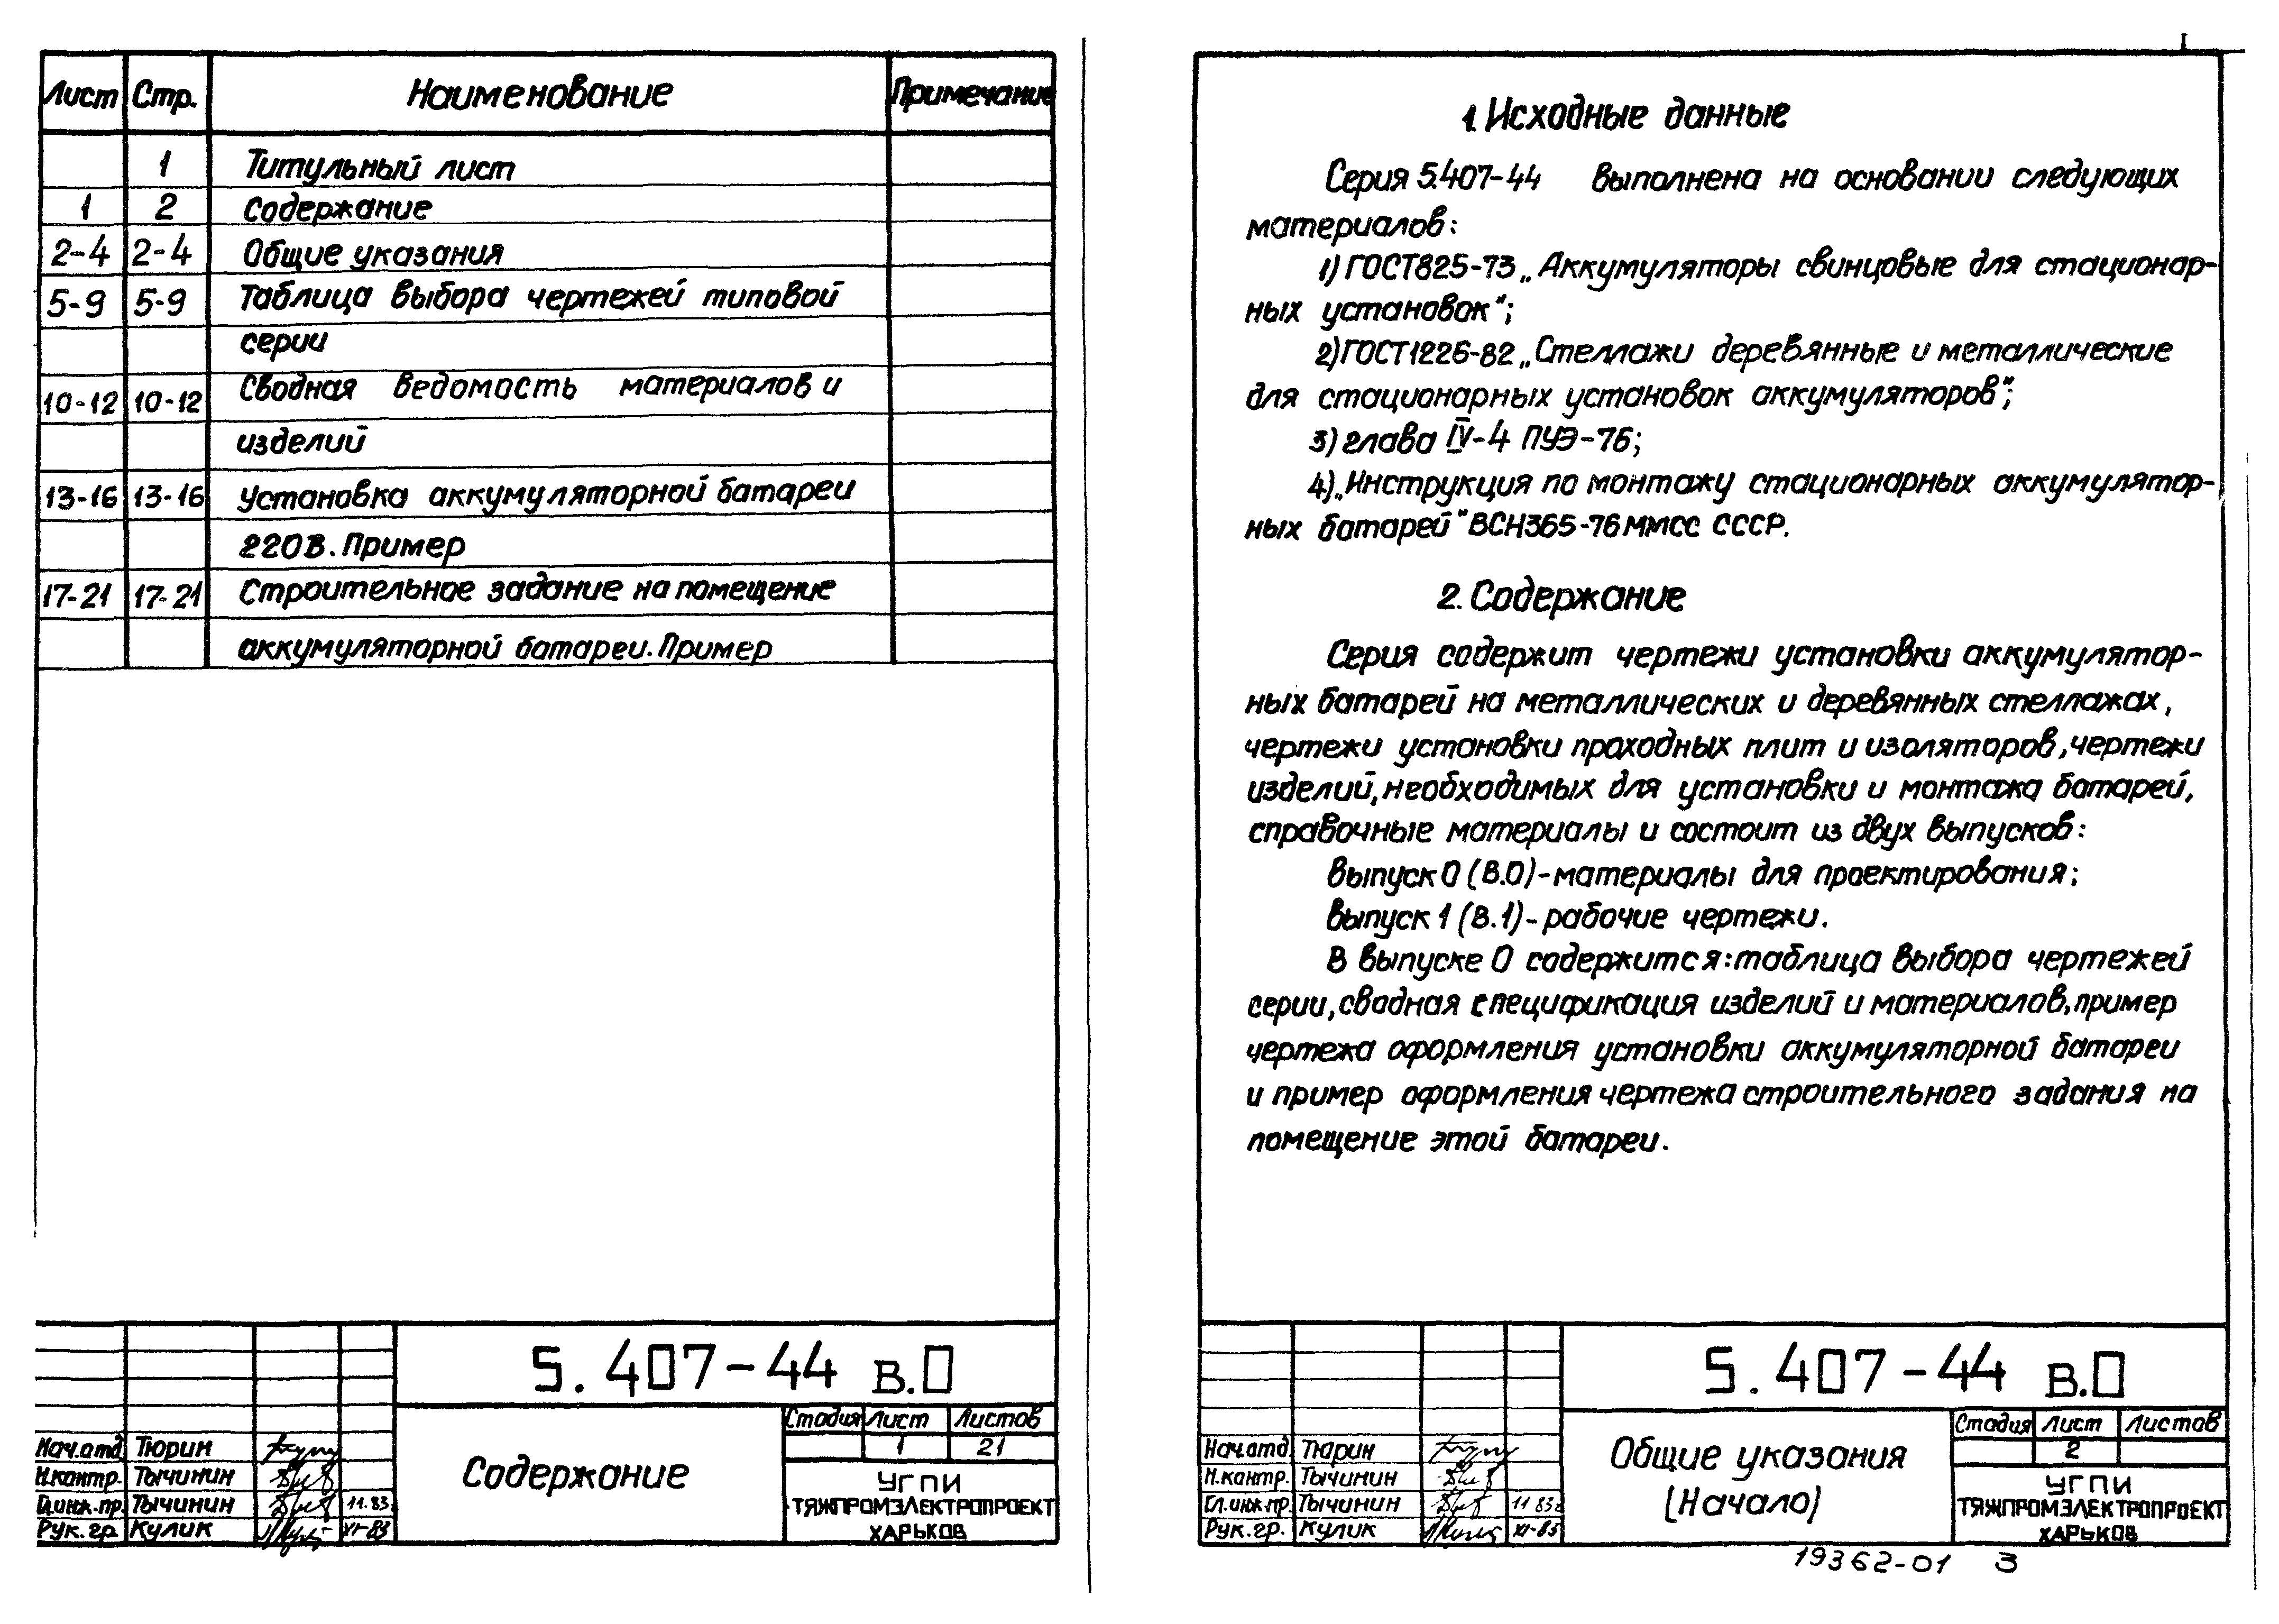 Лист Стр. Наименование Примечание
1 Титульный лист
1 2 Содержание
2-4 2-4 Общие указания
5-9 5-9 Таблица выбора чертежей типовой
серии
10-12 10-12 Сводная ведомость материалов и
изделий
13-16 13-16 Установка аккумуляторной батареи
220В. Пример
17-21 17-21 Строительное задание на помещение
аккумуляторной батареи. Пример
5.407-44 В.0
Содержание
Стадия Лист Листов
1 21
УГПИ
ТЯЖПРОМЭЛЕКТРОПРОЕКТ
ХАРЬКОВ
Нач.отд. Тюрин
Н.контр. Тычинин
Гл.инж.пр. Тычинин 11.83г.
Рук.гр. Кулик XI-83
1. Исходные данные
Серия 5.407-44 выполнена на основании следующих
материалов:
1) ГОСТ825-73 „Аккумуляторы свинцовые для стационар-
ных установок";
2) ГОСТ1226-82 „Стеллажи деревянные и металлические
для стационарных установок аккумуляторов";
3) глава IV-4 ПУЭ-76;
4) „Инструкция по монтажу стационарных аккумулятор-
ных батарей" ВСН365-76 ММСС СССР.
2. Содержание
Серия содержит чертежи установки аккумулятор-
ных батарей на металлических и деревянных стеллажах,
чертежи установки проходных плит и изоляторов, чертежи
изделий, необходимых для установки и монтажа батарей,
справочные материалы и состоит из двух выпусков:
выпуск 0 (В.0) - материалы для проектирования;
выпуск 1 (В.1) - рабочие чертежи.
В выпуске 0 содержится: таблица выбора чертежей
серии, сводная спецификация изделий и материалов, пример
чертежа оформления установки аккумуляторной батареи
и пример оформления чертежа строительного задания на
помещение этой батареи.
5.407-44 В.0
Общие указания
(Начало)
Стадия Лист Листов
2
УГПИ
ТЯЖПРОМЭЛЕКТРОПРОЕКТ
ХАРЬКОВ
Нач.отд. Тюрин
Н.контр. Тычинин
Гл.инж.пр. Тычинин 11.83г.
Рук.гр. Кулик XI-83
19362-01 3